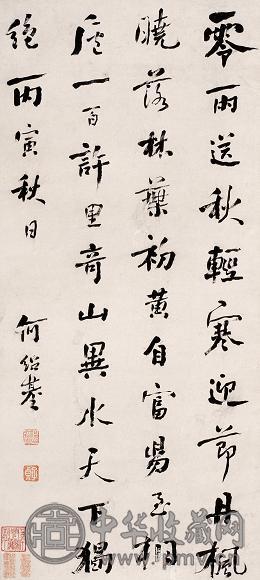 零雨送秋輕寒迎節丹楓
曉落林葉初黃自富昜至桐
廬一百許里奇山異水天下獨
絕丙寅秋日
何紹基
中华收藏网